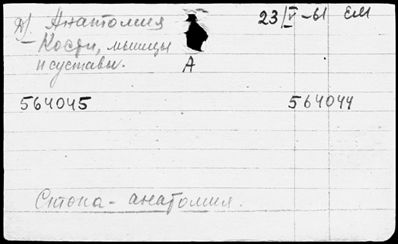 д). Анатомия 23/V-61 ЕМ
Кости, мышцы
и суставы. А
564045 564044
Стопа - анатомия.